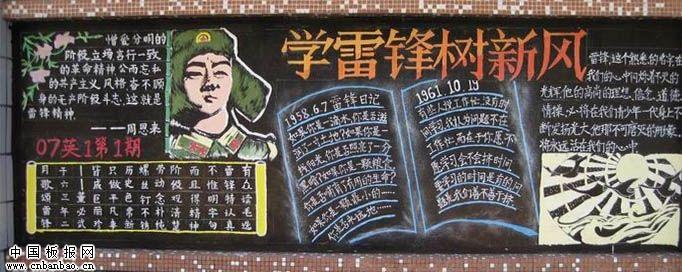 憎爱分明的
阶级立场言行一致
的革命精神公而忘私
的共产主义风格奋不顾
身的无产阶级斗志,这就是
雷锋精神
——周恩来
07英1第1期
学雷锋树新风
1958.6.7 雷锋日记
如果你是一滴水,你是否滋
润了一寸土地?如果你是一
线阳光,你是否照亮了一分
黑暗?如果你是一颗粮食
你是否哺育了有用的生命?
如果你是一颗最小的……
你是否永远
1961.10.19
有些人说工作忙,没有时
间学习.我认为问题不在
工作忙,而在于你愿不
愿意学习会不会挤时间
要学习的时间是有的问
题是我们善不善于挤
雷锋,这个熟悉的名字在
我们的心中闪烁着不灭的
光辉,他的高尚的理想、信念、道德
情操,必将在我们青少年一代身上不
断发扬光大,他那不可磨灭的形象,
将永远活在我们的心中
中国板报网
www.cnbanbao.cn